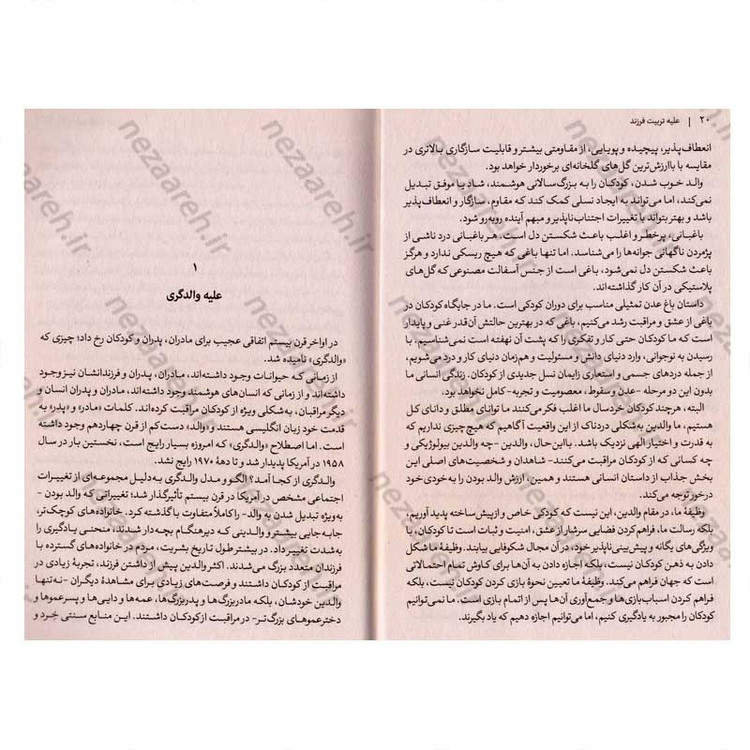 ۲۰ | علیه تربیت فرزند
انعطاف‌پذیر، پیچیده و پویایی، از مقاومتی بیشتر و قابلیت سازگاری بالاتری در
مقایسه با باارزش‌ترین گل‌های گلخانه‌ای برخوردار خواهد بود.
والد خوب شدن، کودکان را به بزرگ‌سالانی هوشمند، شاد یا موفق تبدیل
نمی‌کند، اما می‌تواند به ایجاد نسلی کمک کند که مقاوم، سازگار و انعطاف‌پذیر
باشد و بهتر بتواند با تغییرات اجتناب‌ناپذیر و مبهم آینده روبه‌رو شود.
باغبانی، پرخطر و اغلب باعث شکستن دل است. هر باغبانی درد ناشی از
پژمردن ناگهانی جوانه‌ها را می‌شناسد. اما تنها باغی که هیچ ریسکی ندارد و هرگز
باعث شکستن دل نمی‌شود، باغی است از جنس آسفالت مصنوعی که گل‌های
پلاستیکی در آن کار گذاشته‌اند.
داستان باغ عدن تمثیلی مناسب برای دوران کودکی است. ما در جایگاه کودکان در
باغی از عشق و مراقبت رشد می‌کنیم، باغی که در بهترین حالتش آن‌قدر غنی و پایدار
است که ما کودکان حتی کار و تفکری را که پشت آن نهفته است نمی‌شناسیم. با
رسیدن به نوجوانی، وارد دنیای دانش و مسئولیت و هم‌زمان دنیای کار و درد می‌شویم،
از جمله دردهای جسمی و استعاری زایمان نسل جدیدی از کودکان. زندگی انسانی ما
بدون این دو مرحله -عدن و سقوط، معصومیت و تجربه- کامل نخواهد بود.
البته، هرچند کودکان خردسال ما اغلب فکر می‌کنند ما توانای مطلق و دانای کل
هستیم، ما والدین به‌شکلی دردناک از این واقعیت آگاهیم که هیچ‌چیزی نداریم که
به قدرت و اختیار الهی نزدیک باشد. بااین‌حال، والدین -چه والدین بیولوژیکی و
چه کسانی که از کودکان مراقبت می‌کنند- شاهدان و شخصیت‌های اصلی این
بخش جذاب از داستان انسانی هستند و همین، ارزش والد بودن را به‌خودی خود
درخور توجه می‌کند.
وظیفهٔ ما، در مقام والدین، این نیست که کودکی خاص و ازپیش‌ساخته پدید آوریم،
بلکه رسالت ما، فراهم کردن فضایی سرشار از عشق، امنیت و ثبات است تا کودکان، با
ویژگی‌های یگانه و پیش‌بینی‌ناپذیر خود، در آن مجال شکوفایی بیابند. وظیفهٔ ما شکل
دادن به ذهن کودکان نیست، بلکه اجازه دادن به آن‌ها برای کاوش تمام احتمالاتی
است که جهان فراهم می‌کند. وظیفهٔ ما تعیین نحوهٔ بازی کردن کودکان نیست، بلکه
فراهم کردن اسباب‌بازی‌ها و جمع‌آوری آن‌ها پس از اتمام بازی است. ما نمی‌توانیم
کودکان را مجبور به یادگیری کنیم، اما می‌توانیم اجازه دهیم که یاد بگیرند.
۱
علیه والدگری
در اواخر قرن بیستم اتفاقی عجیب برای مادران، پدران و کودکان رخ داد؛ چیزی که
«والدگری» نامیده شد.
از زمانی که حیوانات وجود داشته‌اند، مادران، پدران و فرزندانشان نیز وجود
داشته‌اند و از زمانی که انسان‌های هوشمند وجود داشته‌اند، مادران و پدران انسان و
دیگر مراقبان، به‌شکلی ویژه از کودکان مراقبت کرده‌اند. کلمات «مادر» و «پدر» به
قدمت خود زبان انگلیسی هستند و «والد» دست‌کم از قرن چهاردهم وجود داشته
است. اما اصطلاح «والدگری» که امروزه بسیار رایج است، نخستین بار در سال
۱۹۵۸ در آمریکا پدیدار شد و تا دههٔ ۱۹۷۰ رایج نشد.
والدگری از کجا آمد؟ الگو و مدل والدگری به‌دلیل مجموعه‌ای از تغییرات
اجتماعی مشخص در آمریکا در قرن بیستم تأثیرگذار شد؛ تغییراتی که والد بودن -
به‌ویژه تبدیل شدن به والد- را کاملاً متفاوت با گذشته کرد. خانواده‌های کوچک‌تر،
جابه‌جایی بیشتر و والدینی که دیرهنگام بچه‌دار شدند، منحنی یادگیری را
به‌شدت تغییر داد. در بیشتر طول تاریخ بشریت، مردم در خانواده‌های گسترده با
فرزندان متعدد بزرگ می‌شدند. اکثر والدین پیش از داشتن فرزند، تجربهٔ زیادی در
مراقبت از کودکان داشتند و فرصت‌های زیادی برای مشاهدهٔ دیگران -نه‌تنها
والدین خودشان، بلکه مادربزرگ‌ها و پدربزرگ‌ها، عمه‌ها و دایی‌ها و پسرعموها و
دخترعموهای بزرگ‌تر- در مراقبت از کودکان داشتند. این منابع سنتی خِرد و
nezaareh.ir
nezaareh.ir
nezaareh.ir
nezaareh.ir
nezaareh.ir
nezaareh.ir